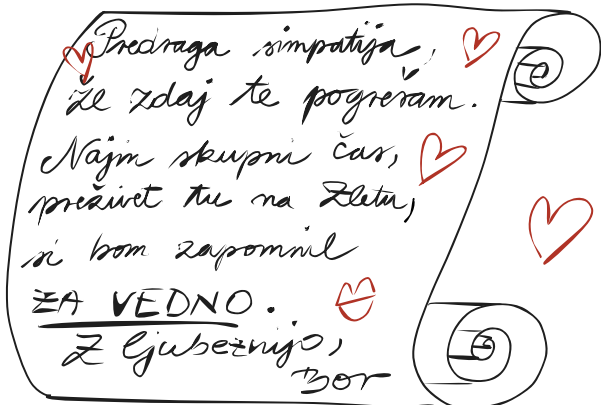 Predraga simpatija,
že zdaj te pogrešam.
Najin skupni čas,
preživet tu na Zletu,
si bom zapomnil
ZA VEDNO.
Z ljubeznijo,
Bor